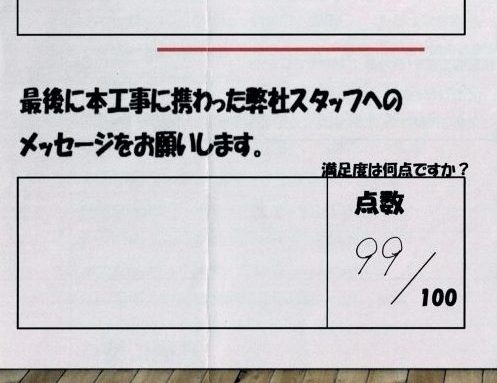 最後に本工事に携わった弊社スタッフへの
メッセージをお願いします。
満足度は何点ですか？
点数
99/100